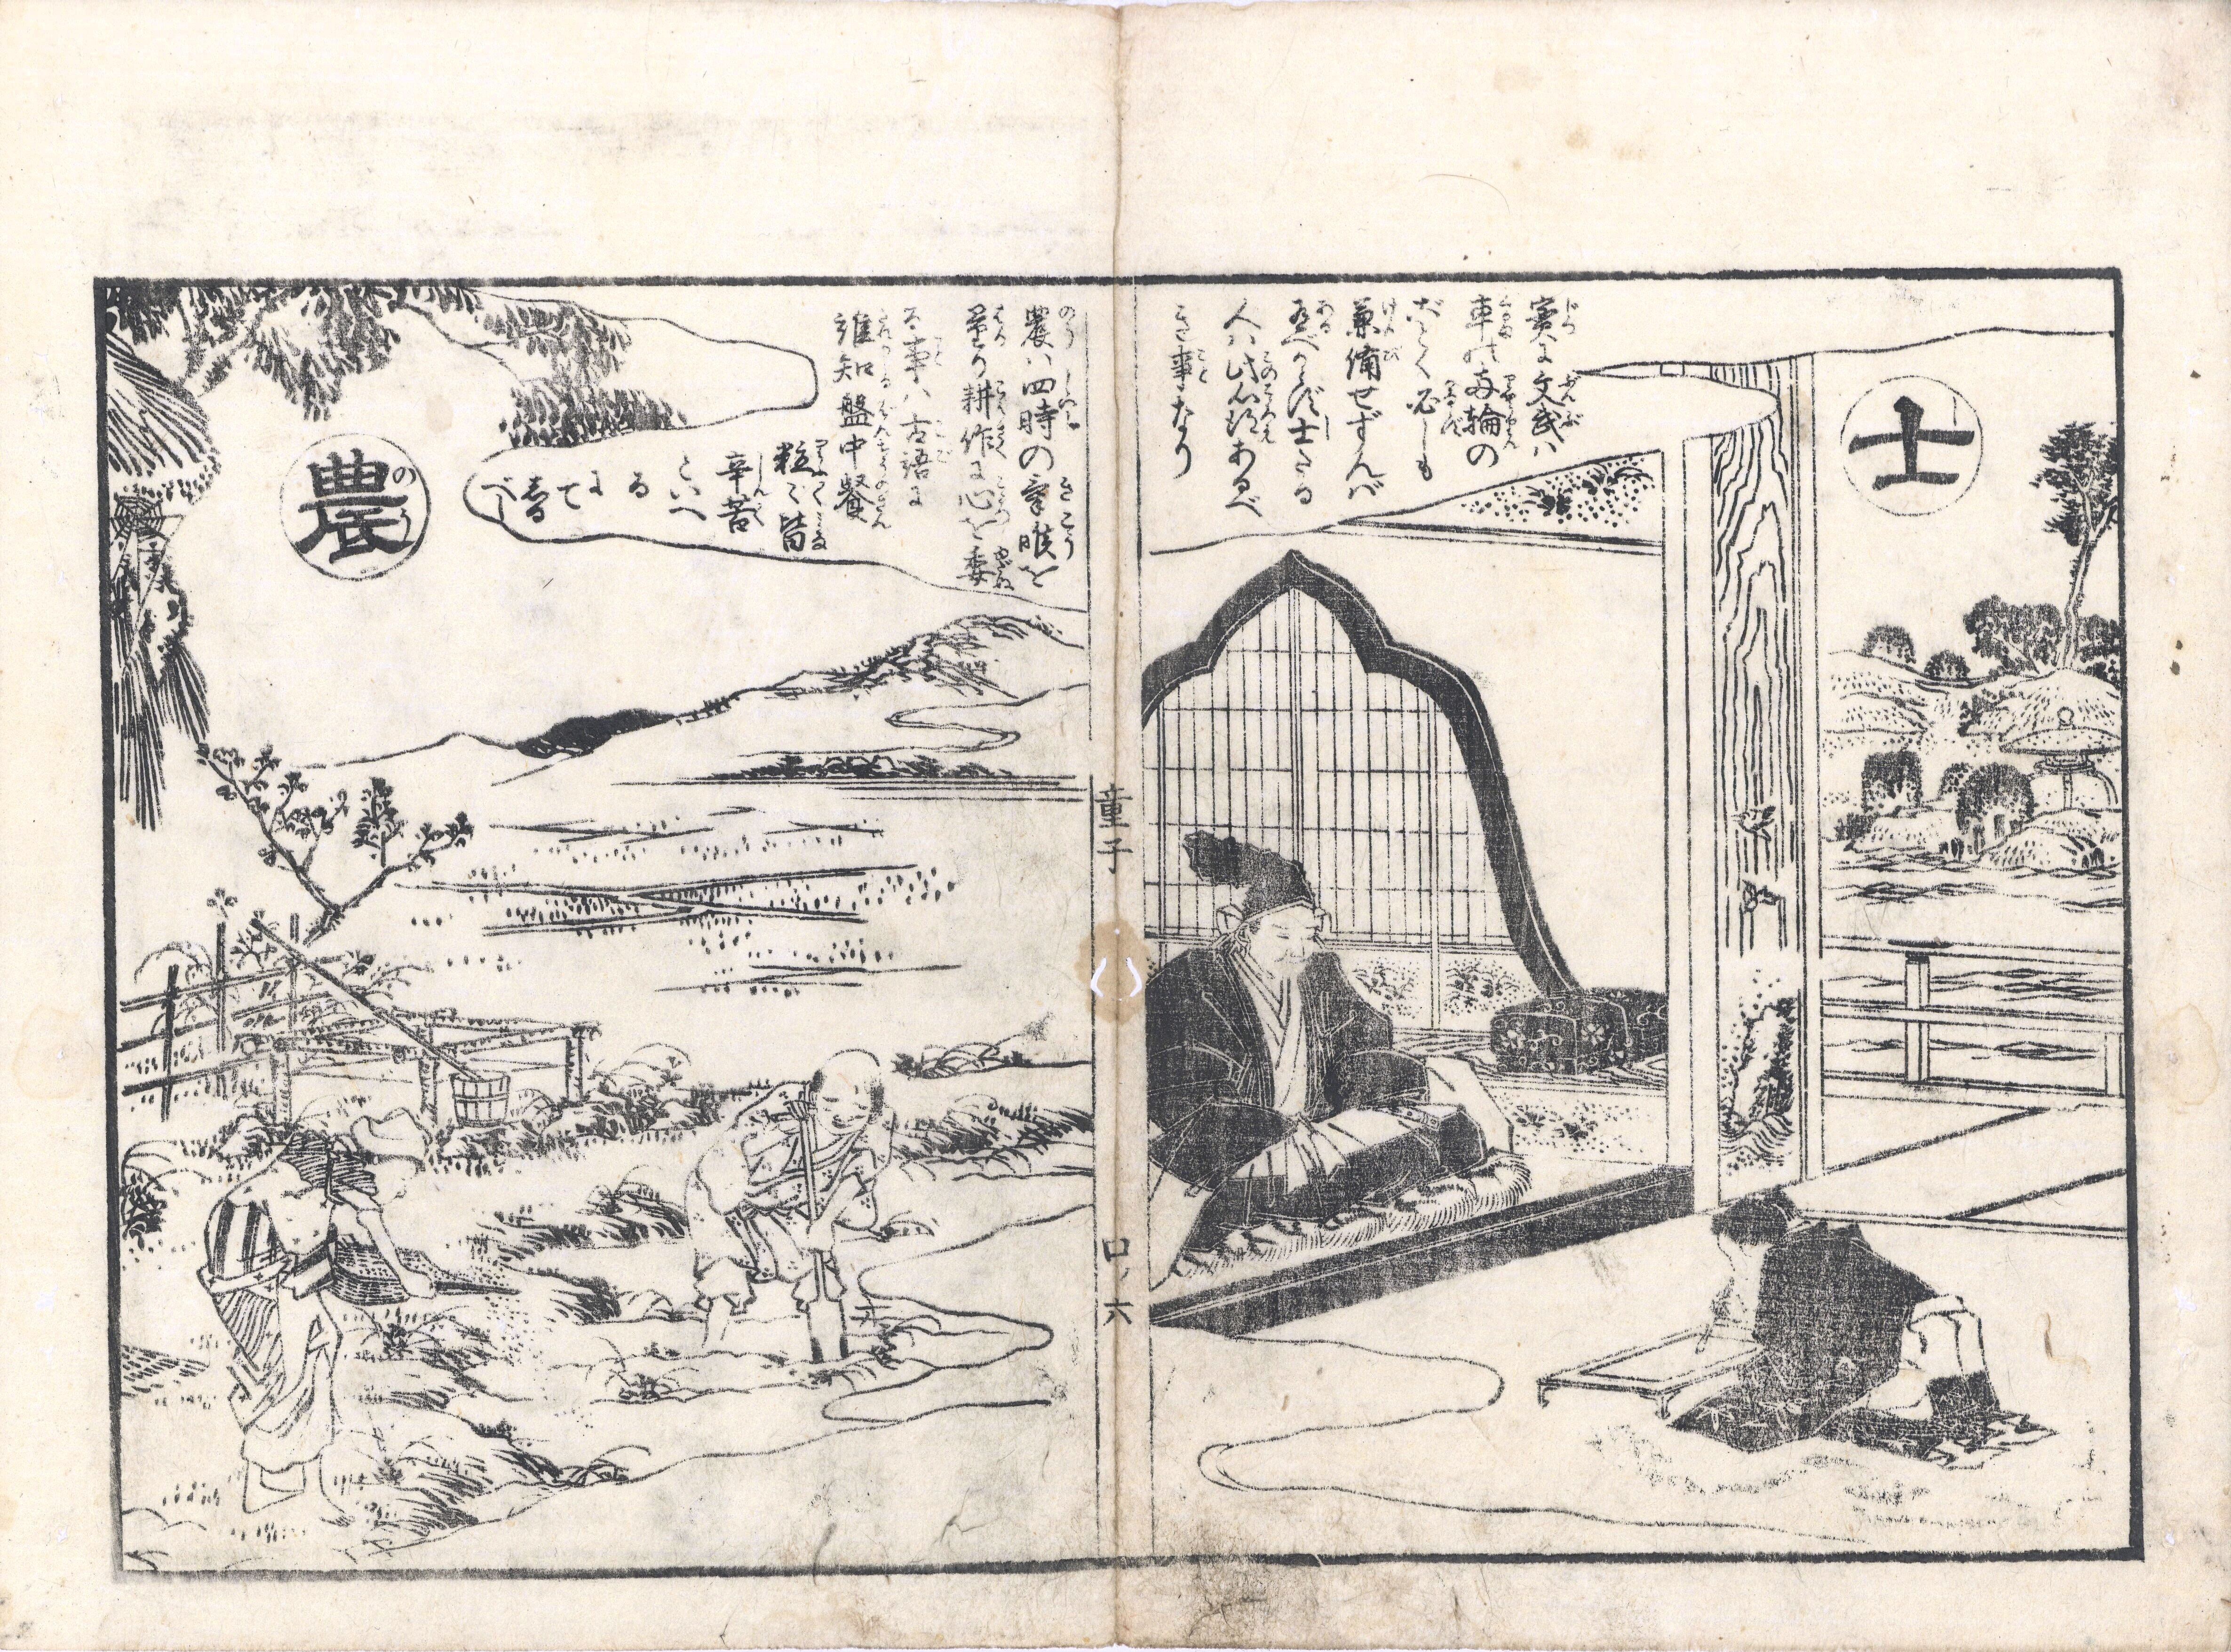 士
実に文武ハ
車の両輪の
ごとく必しも
兼備せずんバ
有べからず士たる
人ハ此心得あるべ
き事なり
童子
口ノ六
農ハ四時の気候を
量り耕作に心を委
る事ハ古語に
誰知盤中飧
粒々皆
辛苦
といへ
るに
て
しる
べし
農